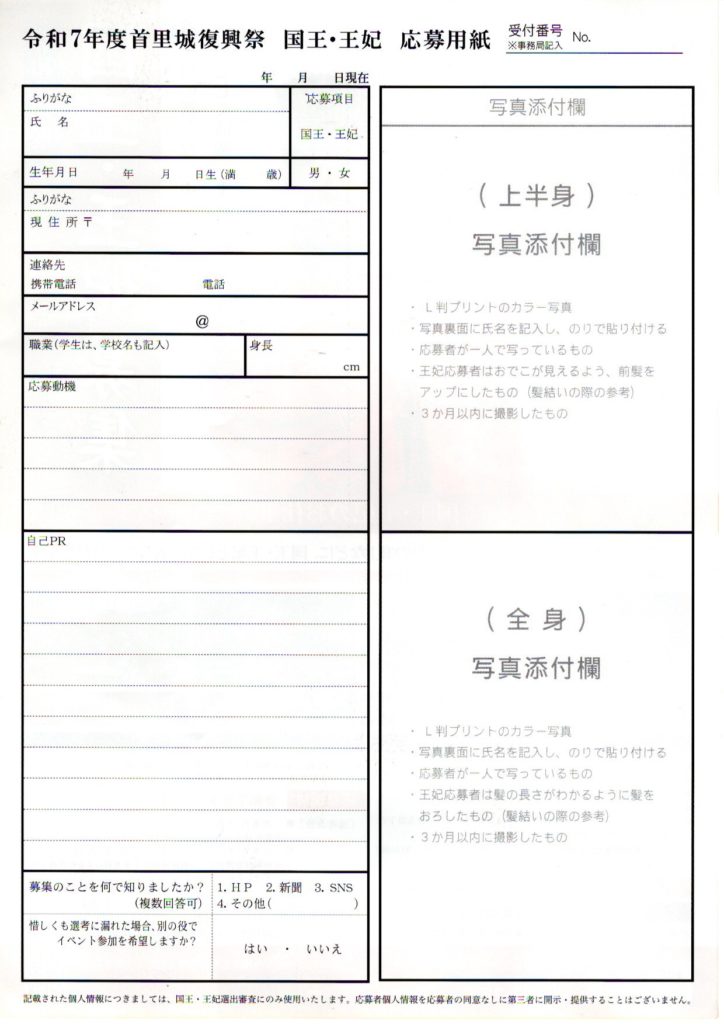 令和7年度首里城復興祭 国王・王妃 応募用紙
受付番号
※事務局記入
No.
年 月 日現在
ふりがな
氏 名
応募項目
国王・王妃
生年月日 年 月 日生(満 歳)
男・女
ふりがな
現 住 所 〒
連絡先
携帯電話 電話
メールアドレス
@
職業(学生は、学校名も記入)
身長
cm
応募動機
自己PR
募集のことを何で知りましたか?
(複数回答可)
1.HP 2.新聞 3.SNS
4.その他( )
惜しくも選考に漏れた場合、別の役で
イベント参加を希望しますか?
はい ・ いいえ
写真添付欄
(上半身)
写真添付欄
・ L判プリントのカラー写真
・写真裏面に氏名を記入し、のりで貼り付ける
・応募者が一人で写っているもの
・王妃応募者はおでこが見えるよう、前髪を
アップにしたもの(髪結いの際の参考)
・3か月以内に撮影したもの
(全 身)
写真添付欄
・ L判プリントのカラー写真
・写真裏面に氏名を記入し、のりで貼り付ける
・応募者が一人で写っているもの
・王妃応募者は髪の長さがわかるように髪を
おろしたもの(髪結いの際の参考)
・3か月以内に撮影したもの
記載された個人情報につきましては、国王・王妃選出審査にのみ使用いたします。応募者個人情報を応募者の同意なしに第三者に開示・提供することはございません。